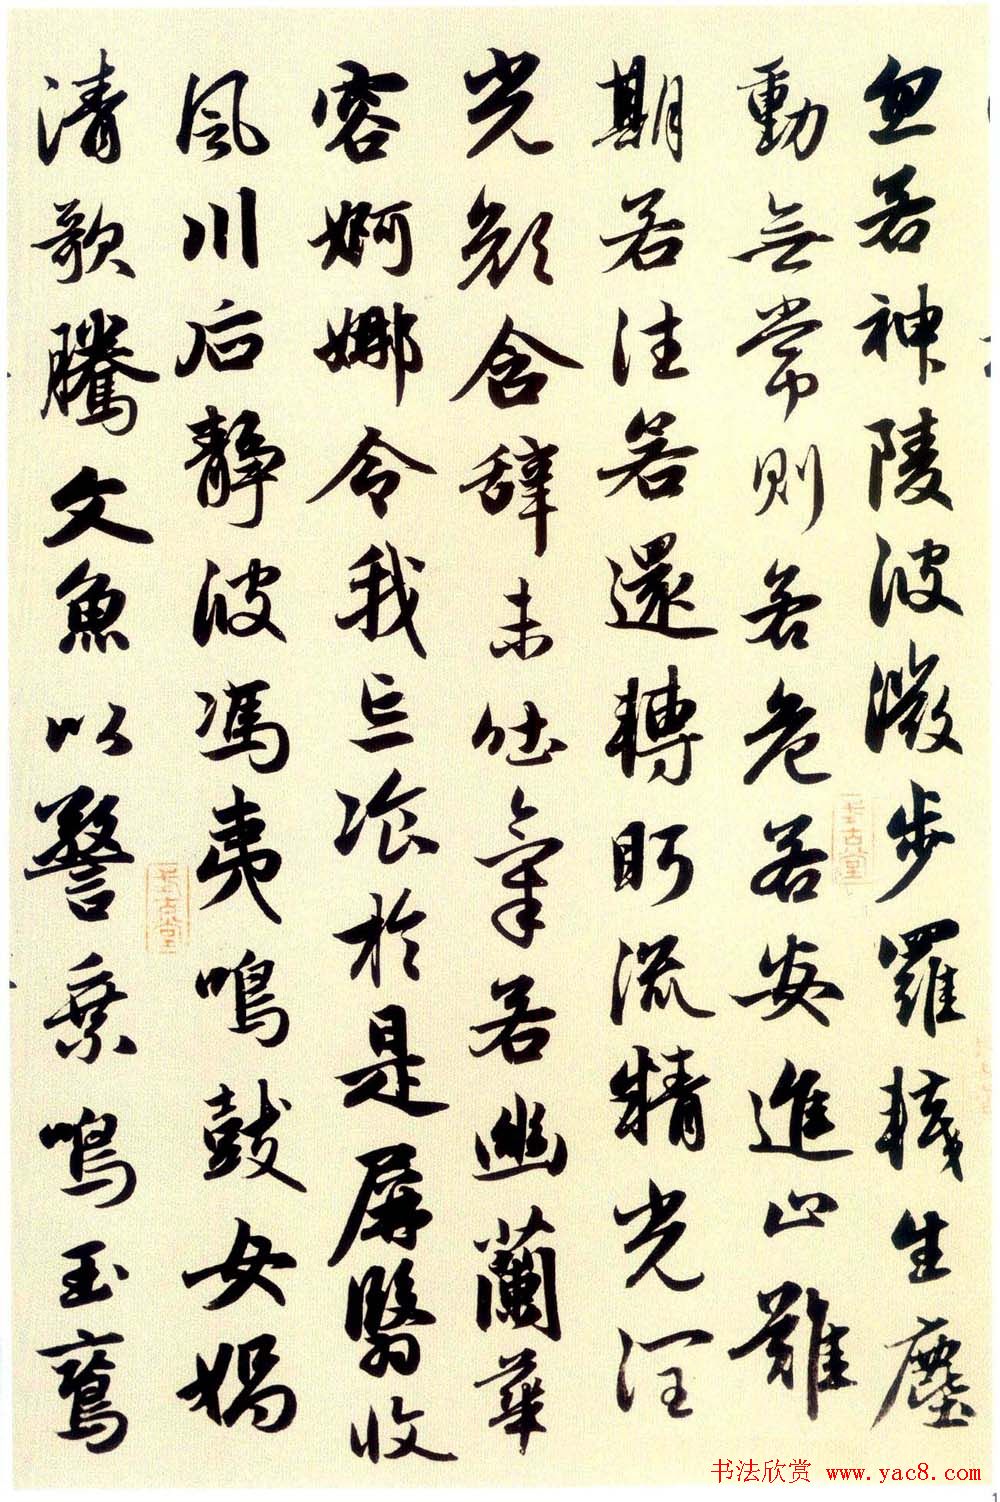 忽若神陵波微步羅韈生塵
動無常則若危若安進止難
期若往若還轉眄流精光潤
光顏含辭未吐氣若幽蘭華
容婀娜令我忘飡於是屏翳收
風川后靜波馮夷鳴鼓女媧
清歌騰文魚以警乘鳴玉鸞
书法欣赏 www.yac8.com
1